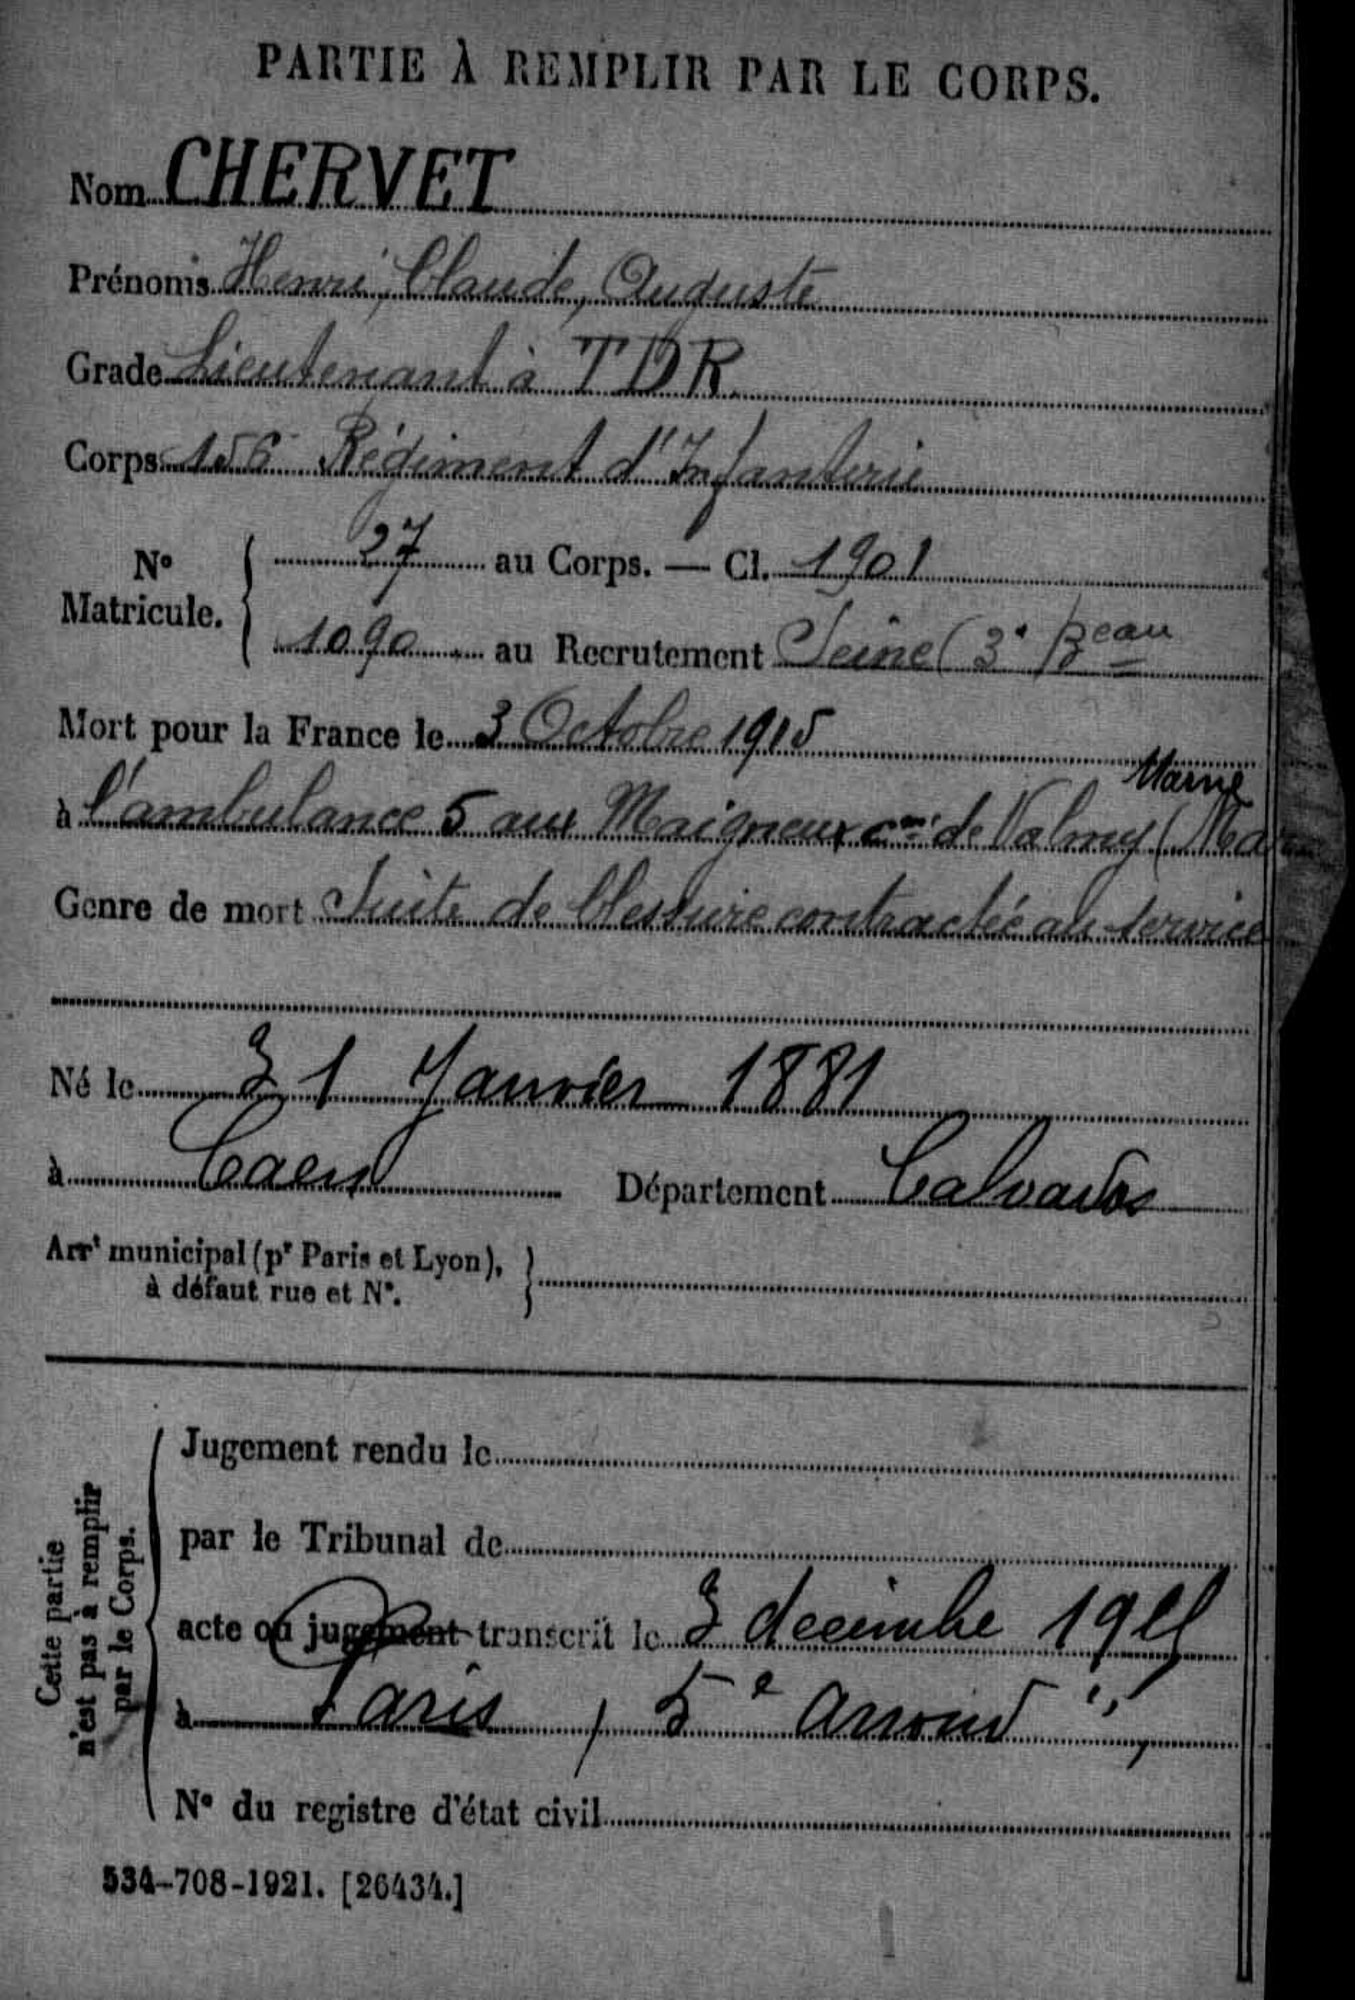 PARTIE À REMPLIR PAR LE CORPS.
Nom CHERVET
Prénoms Henri, Claude, Auguste
Grade Lieutenant à TDR
Corps 156 Régiment d'Infanterie
No Matricule. { 27 au Corps. — Cl. 1901
1090 au Recrutement Seine (3e Beau
Mort pour la France le 3 Octobre 1915
Marne
à l'ambulance 5 aux Maigneux cne de Valmy (
Genre de mort Suite de blessure contractée au service
Né le 31 Janvier 1881
à Caen Département Calvados
Arrt municipal (pr Paris et Lyon),
à défaut rue et No. }
Cette partie
n'est pas à remplir
par le Corps.
Jugement rendu le
par le Tribunal de
acte ou jugement transcrit le 3 decembre 1915
à Paris, 5e Arrond
No du registre d'état civil
534-708-1921. [26434.]